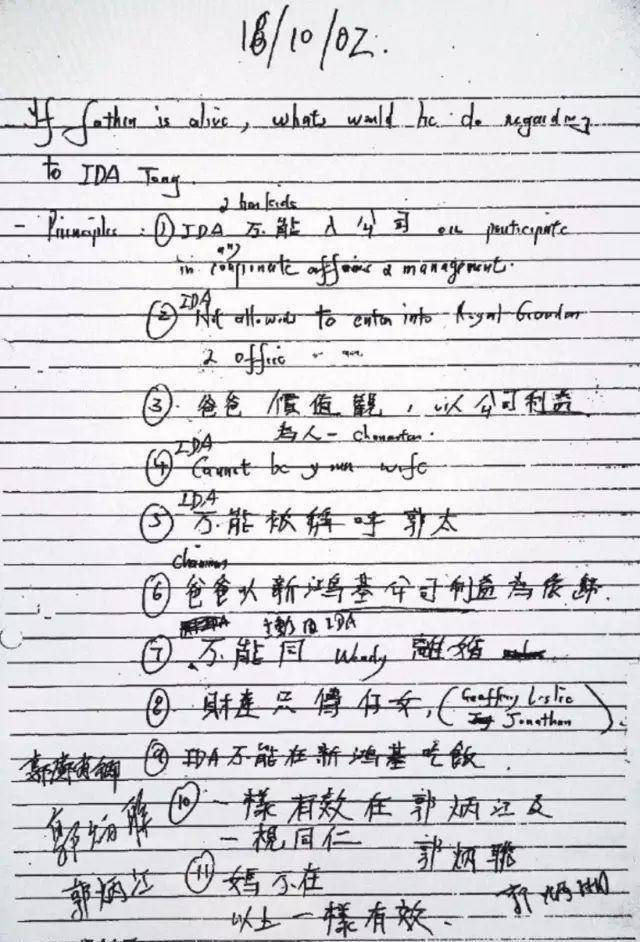 18/10/02.
If father is alive, whats would he do regarding
to IDA Tong.
2 her kids
- Principles : ① IDA 不能入公司 or participate
in any corporate affairs & management.
② IDA Not allowed to enter into Royal Garden
2 office
③ 爸爸價值觀，以公司利益
為人 - character.
④ IDA Cannot be your wife
⑤ IDA 不能被稱呼郭太
chairman
⑥ 爸爸以新鴻基公司利益為依歸.
IDA
⑦ 不能同 Wendy 離婚
⑧ 財產只傳仔女, (Geoffrey Leslie
Jonathan)
⑨ IDA 不能在新鴻基吃飯.
⑩ 一樣有效在郭炳江及
郭炳聯
一視同仁
郭炳江
⑪ 媽不在
以上一樣有效.